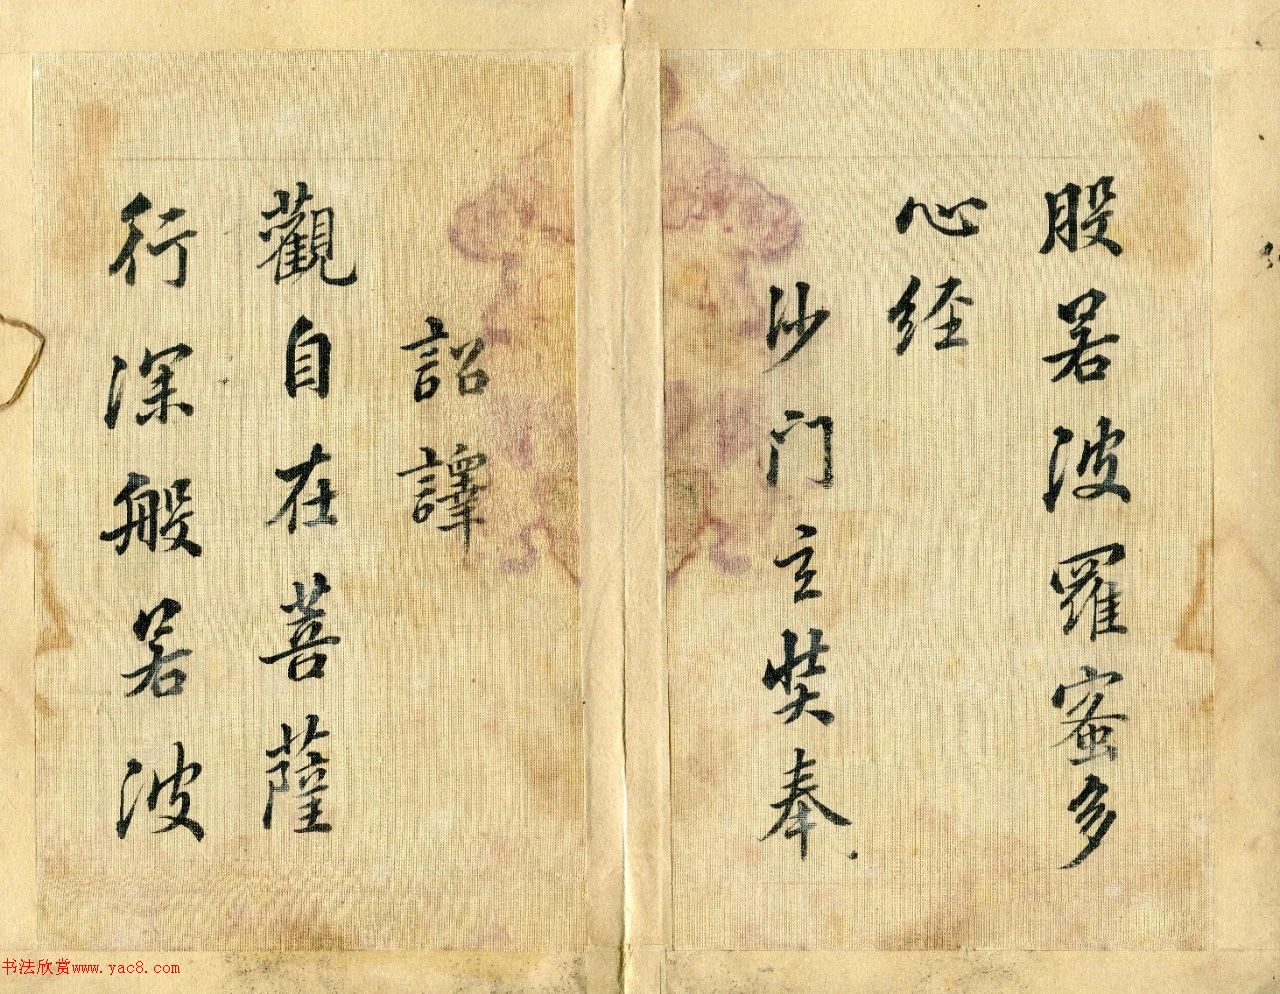 股若波羅蜜多
心经
沙门玄奘奉
詔譯
觀自在菩薩
行深般若波
书法欣赏www.yac8.com